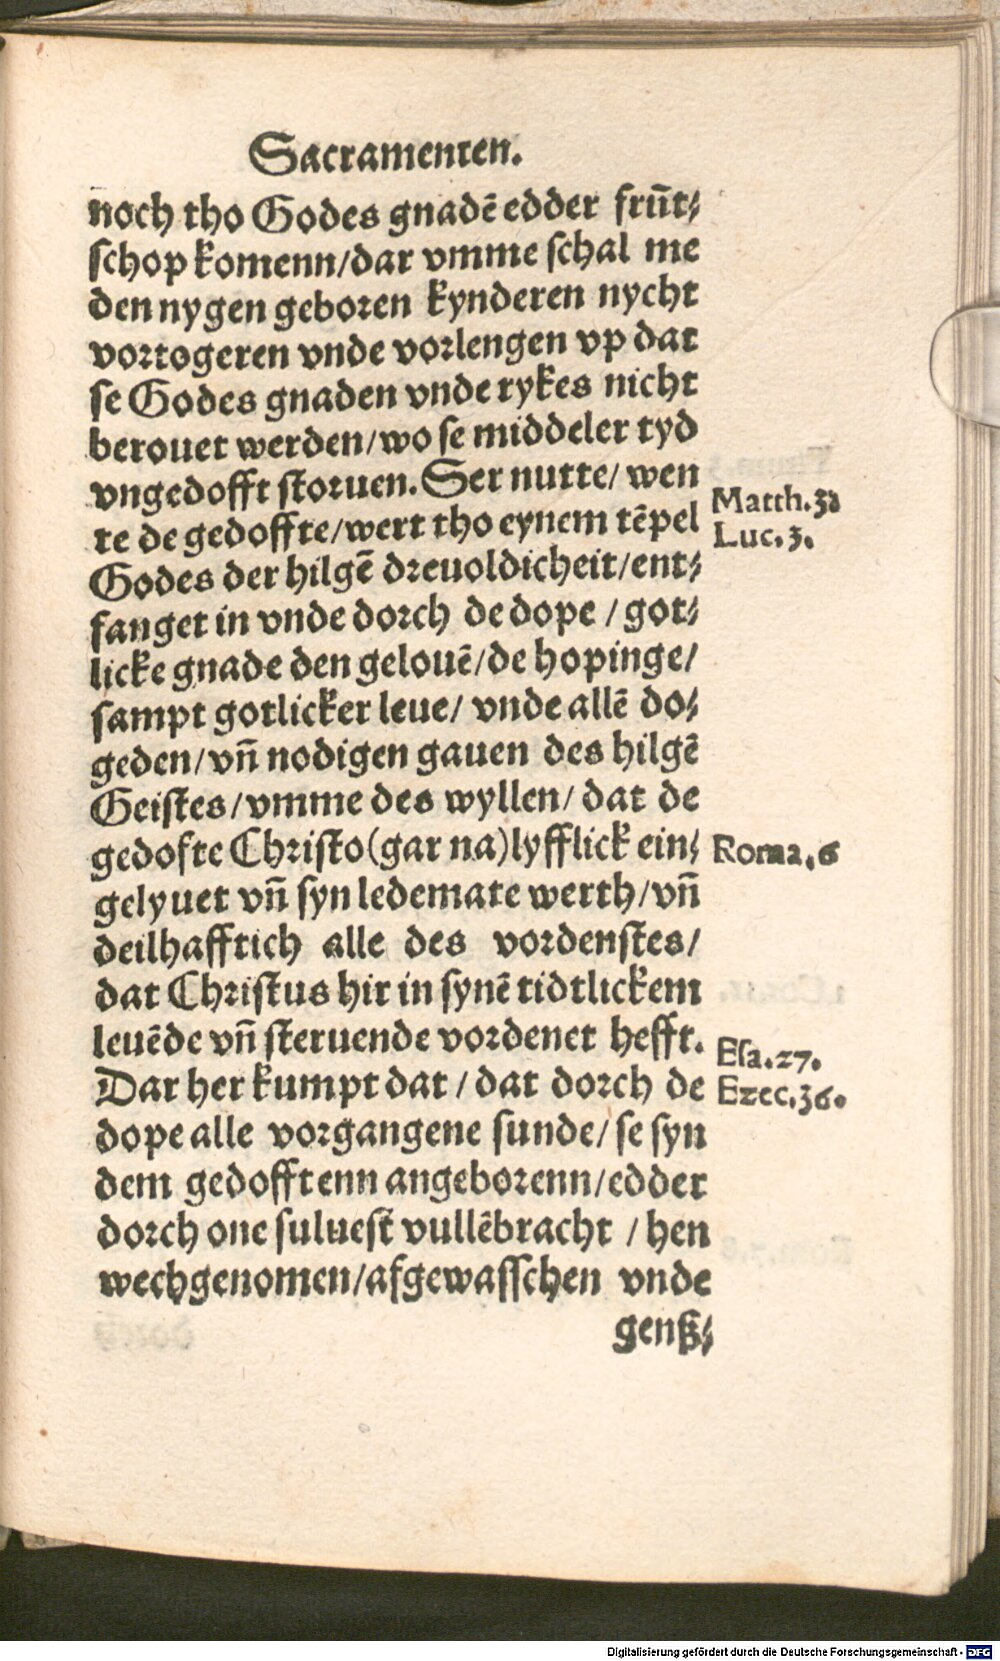 Sacramenten.
noch tho Godes gnadē edder frūt⸗
schop komenn/dar vmme schal me
den nygen geboren kynderen nycht
vortogeren vnde vorlengen vp dat
se Godes gnaden vnde rykes nicht
berouet werden/wo se middeler tyd
vngedofft storuen. Ser nutte/ wen
te de gedoffte/wert tho eynem tēpel
Matth.3.
Luc.3.
Godes der hilgē dreuoldicheit/ent⸗
fanget in vnde dorch de dope /got⸗
licke gnade den gelouē/de hopinge/
sampt gotlicker leue/ vnde allē do⸗
geden/vn̄ nodigen gauen des hilgē
Geistes/vmme des wyllen/ dat de
gedofte Christo(gar na)lyfflick ein⸗
Roma.6
gelyuet vn̄ syn ledemate werth/vn̄
deilhafftich alle des vordenstes/
dat Christus hir in synē tidtlickem
leuēde vn̄ steruende vordenet hefft.
Esa.27.
Dar her kumpt dat / dat dorch de
Ezec.36.
dope alle vorgangene sunde/ se syn
dem gedofftenn angeborenn/edder
dorch one suluest vullēbracht / hen
wechgenomen/afgewasschen vnde
genß⸗
Digitalisierung gefördert durch die Deutsche Forschungsgemeinschaft - DFG